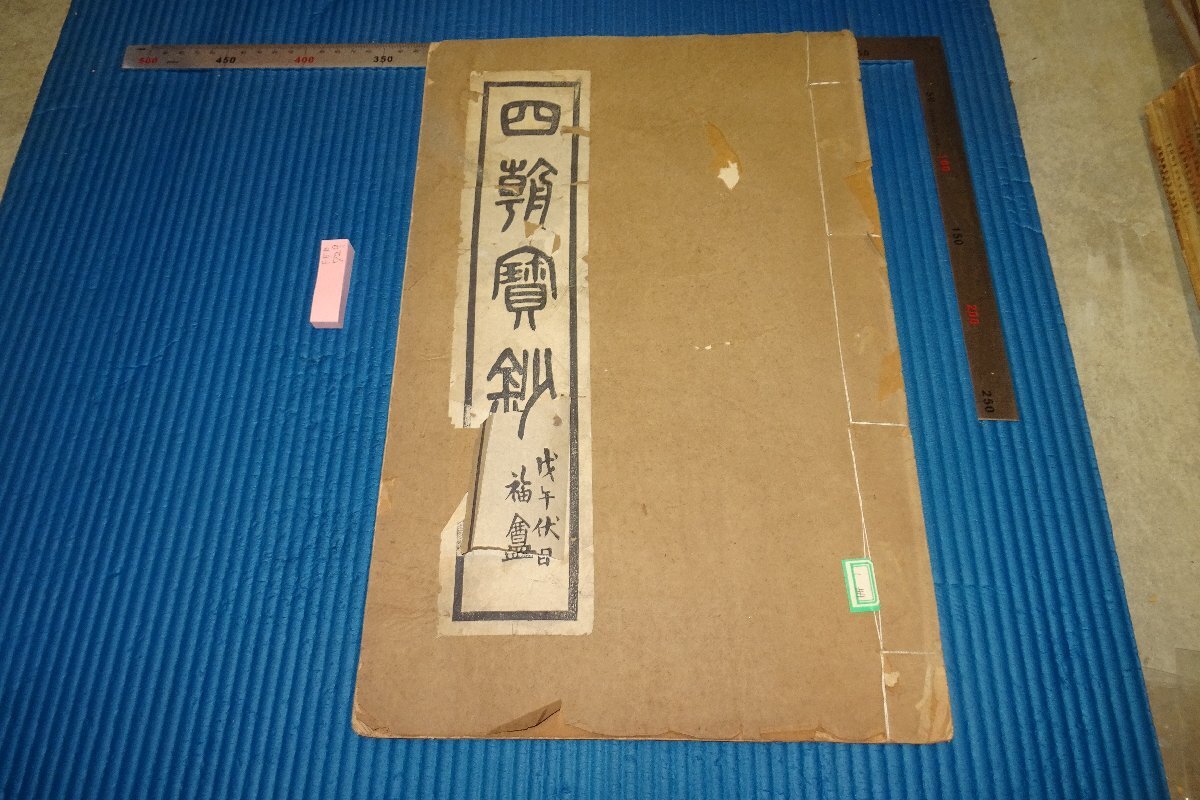 四朝寶鈔
戊午伏日
福盦
500 450 400 350
50
100
150
200
250